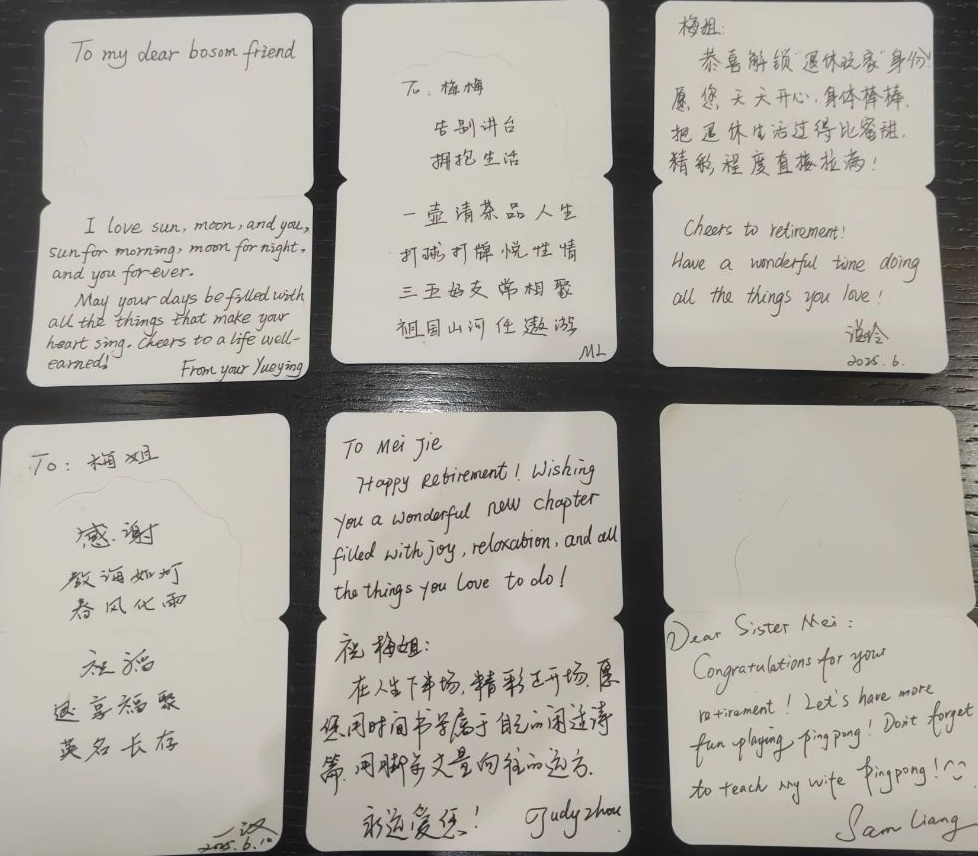 To my dear bosom friend
I love sun, moon, and you,
sun for morning, moon for night,
and you forever.
May your days be filled with
all the things that make your
heart sing. Cheers to a life well-
earned!
From your Yueying
To: 梅梅
告别讲台
拥抱生活
一壶清茶品人生
打球打牌悦性情
三五好友常相聚
祖国山河任遨游
ML
梅姐:
恭喜解锁"退休玩家"身份!
愿您天天开心,身体棒棒,
把退休生活过得比蜜甜,
精彩程度直接拉满!
Cheers to retirement!
Have a wonderful time doing
all the things you love!
2025.6.
To: 梅姐
感谢
教诲如同
春风化雨
祝福
退享福聚
英名长存
2025.6.10
To Mei Jie
Happy Retirement! Wishing
you a wonderful new chapter
filled with joy, relaxation, and all
the things you love to do!
祝梅姐:
在人生下半场,精彩正开场,愿
您用时间书写属于自己的闲适诗
篇,用脚步丈量向往的远方.
永远爱您!
Judy Zhou
Dear Sister Mei:
Congratulations for your
retirement! Let's have more
fun playing pingpong! Don't forget
to teach my wife pingpong!
Sam Liang